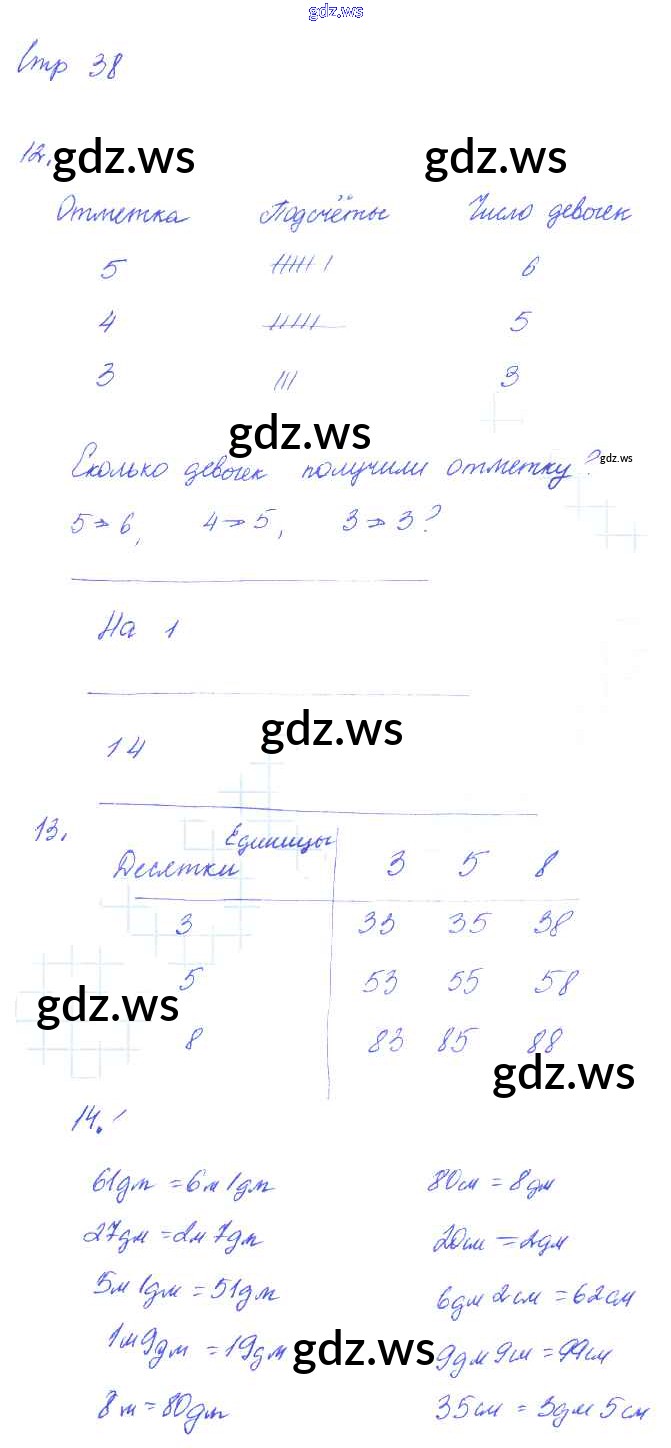 gdz.ws
Стр 38
12.
gdz.ws gdz.ws
Отметка Подсчёты Число девочек
5 𝍸 | 6
4 𝍸 5
3 ||| 3
gdz.ws
Сколько девочек получили отметку? gdz.ws
5 → 6, 4 → 5, 3 → 3?
На 1
gdz.ws
14
13.
Единицы
Десятки 3 5 8
3 33 35 38
5 53 55 58
gdz.ws
8 83 85 88
gdz.ws
14.
61дм = 6м 1дм 80см = 8дм
27дм = 2м 7дм 20см = 2дм
5м 1дм = 51дм 6дм 2см = 62см
1м 9дм = 19дм gdz.ws 9дм 9см = 99см
8м = 80дм 35см = 3дм 5см